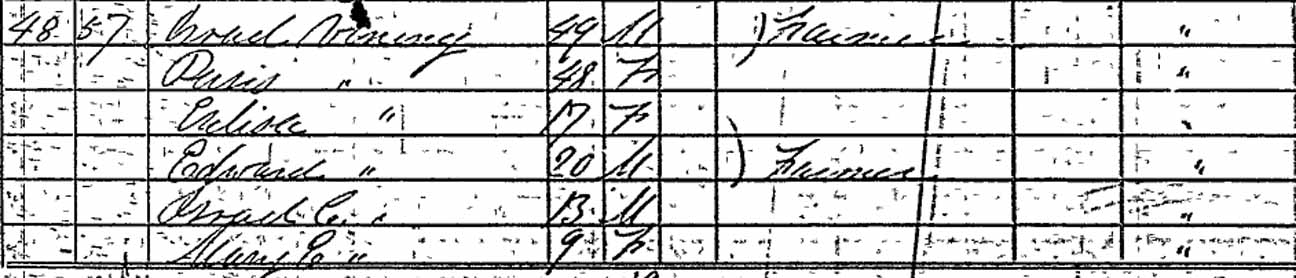 48 57 Israel Vining 49 M ) Farmer "
" 48 F "
" 17 F "
Edward " 20 M ) Farmer "
Israel C. " 13 M "
Mary E " 9 F "